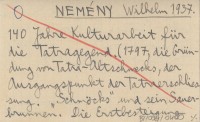 O NEMÉNY Wilhelm 1937.
140 Jahre Kulturarbeit für
die Tatragegend. (1797, die Grün-
dung von Tatra-Altschmecks, der
Ausgangspunkt der Tatraerschlies-
sung. "Schmecks" und sein Sauer-
brunnen. Die Erstbesteigung